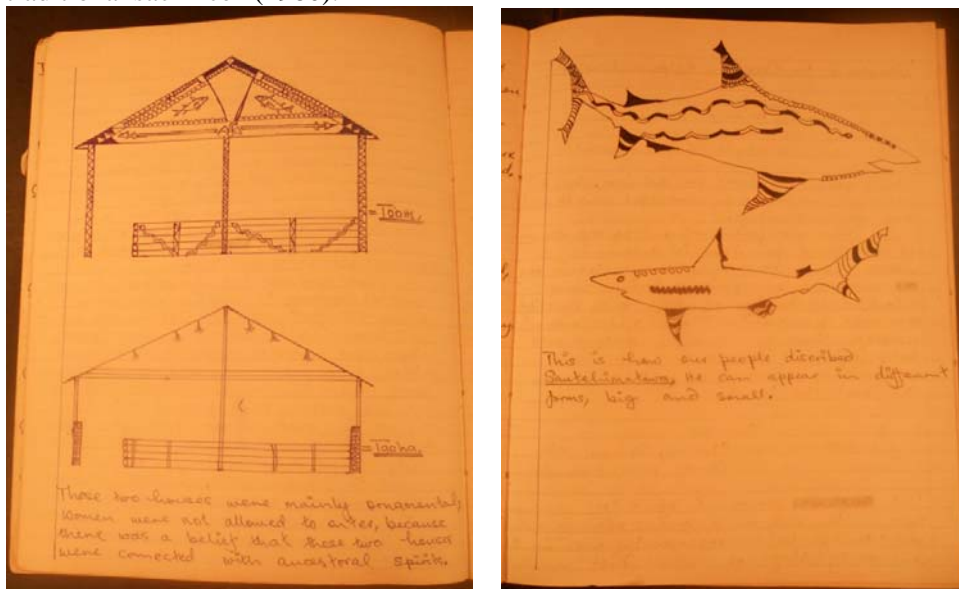 = Taoha.
These two houses were mainly ornamental,
women were not allowed to enter, because
there was a belief that these two houses
were connected with ancestoral spirits.
This is how our people discribed
He can appear in different
forms, big and small.